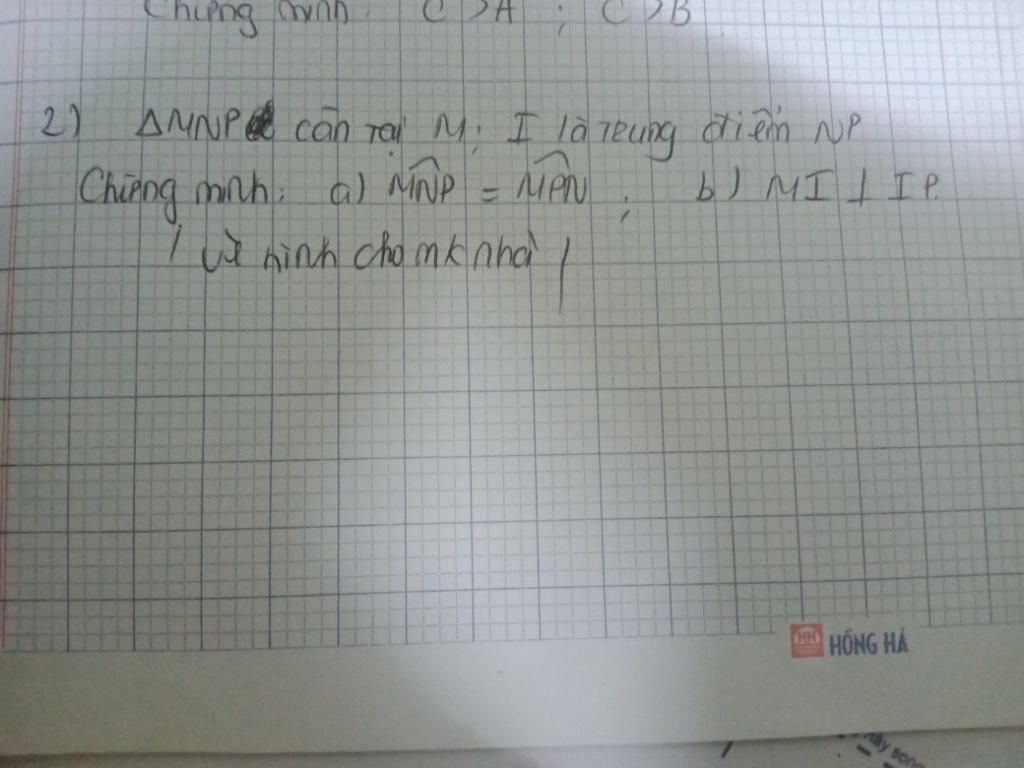 Chứng minh: C > A ; C > B
2) ΔMNP cân tại M; I là trung điểm NP
Chứng minh: a) MNP = MPN ; b) MI ⊥ IP.
/ vẽ hình cho mk nha /
HH HỒNG HÀ
song